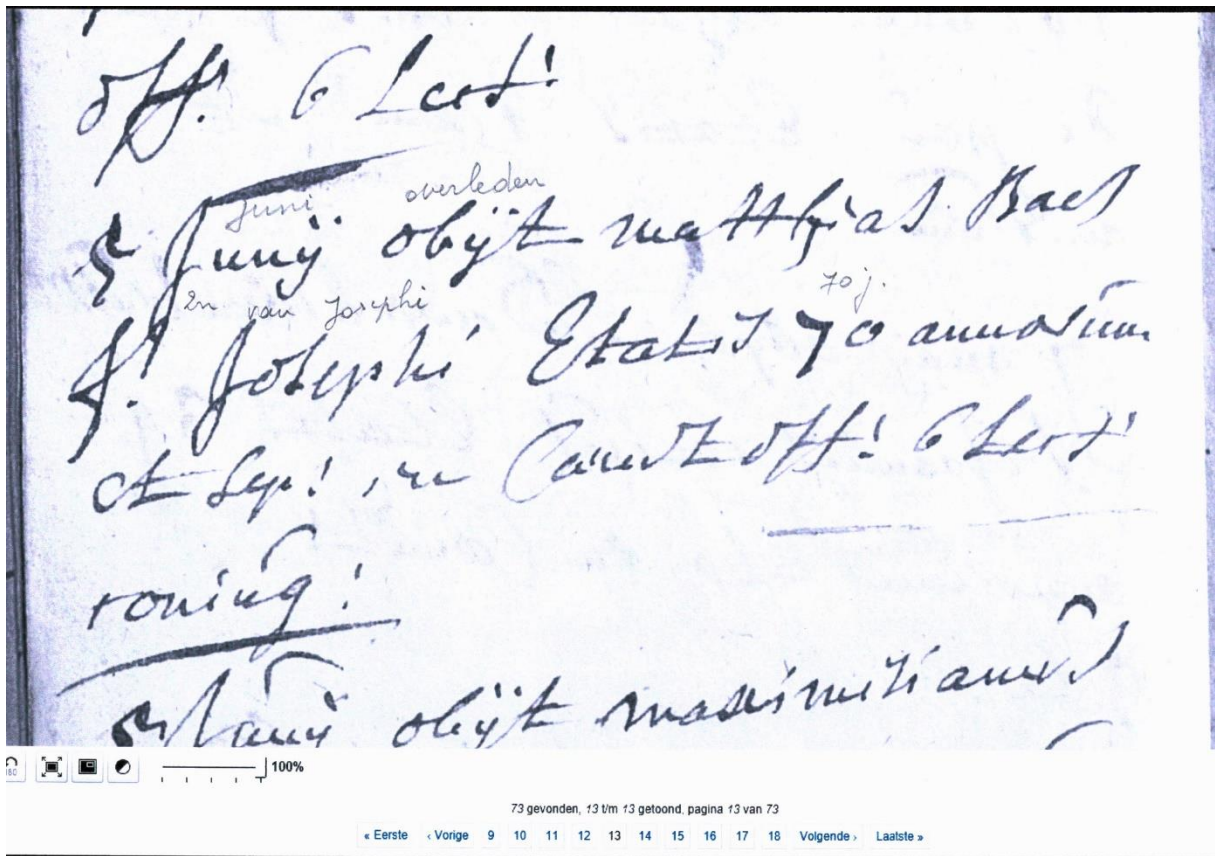 off! 6 Lect!
juni overleden
5 Junÿ obÿt matthias Baes
Zn van Josephi 70 j.
f! Josephi Etatis 70 annorum
et Sep! in off! 6 Lect!
roning!
5 Junÿ obÿt maximilianus
100%
73 gevonden, 13 t/m 13 getoond, pagina 13 van 73
« Eerste ‹ Vorige 9 10 11 12 13 14 15 16 17 18 Volgende › Laatste »